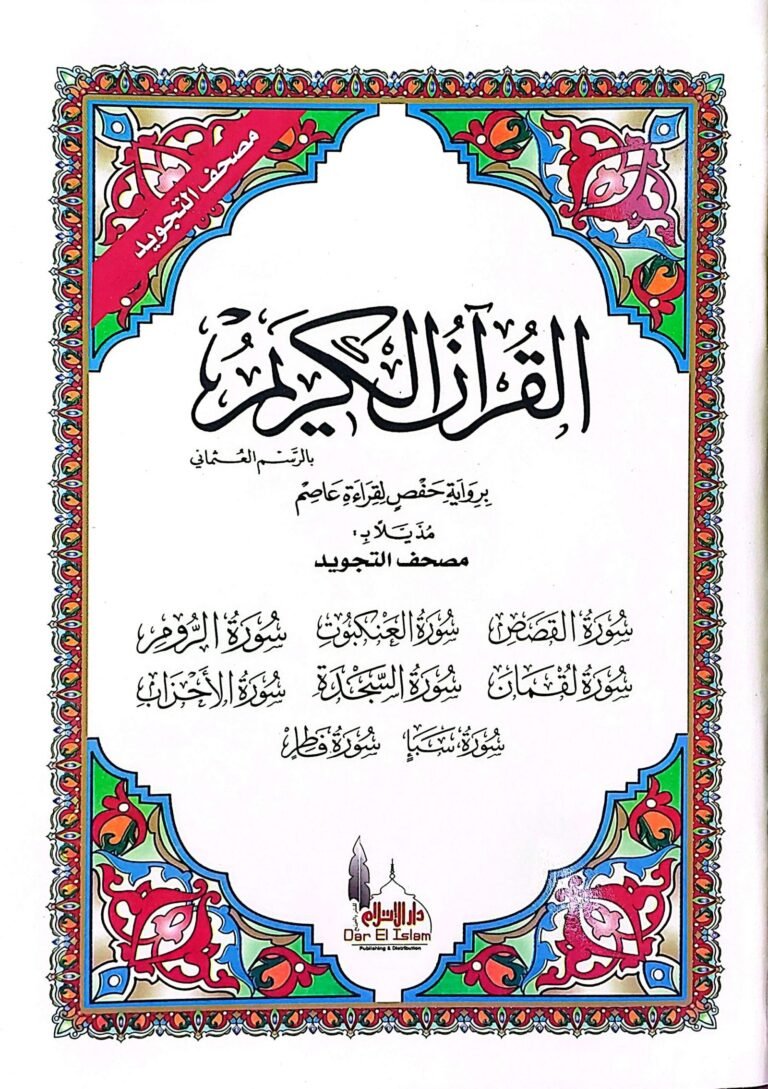 مصحف التجويد
القُرآنُ الكَرِيمُ
بالرَّسْم العُثماني
بِرِوَايَةِ حَفْصٍ لِقِرَاءَةِ عَاصِم
مُذَيَّلاً بِ :
مصحف التجويد
سُورَةُ القَصَصِ سُورَةُ العَنكَبُوتِ سُورَةُ الرُّومِ
سُورَةُ لُقْمَانَ سُورَةُ السَّجْدَةِ سُورَةُ الأَحْزَابِ
سُورَةُ سَبَإٍ سُورَةُ فَاطِرٍ
دار الإسلام
Dar El Islam
Publishing & Distribution